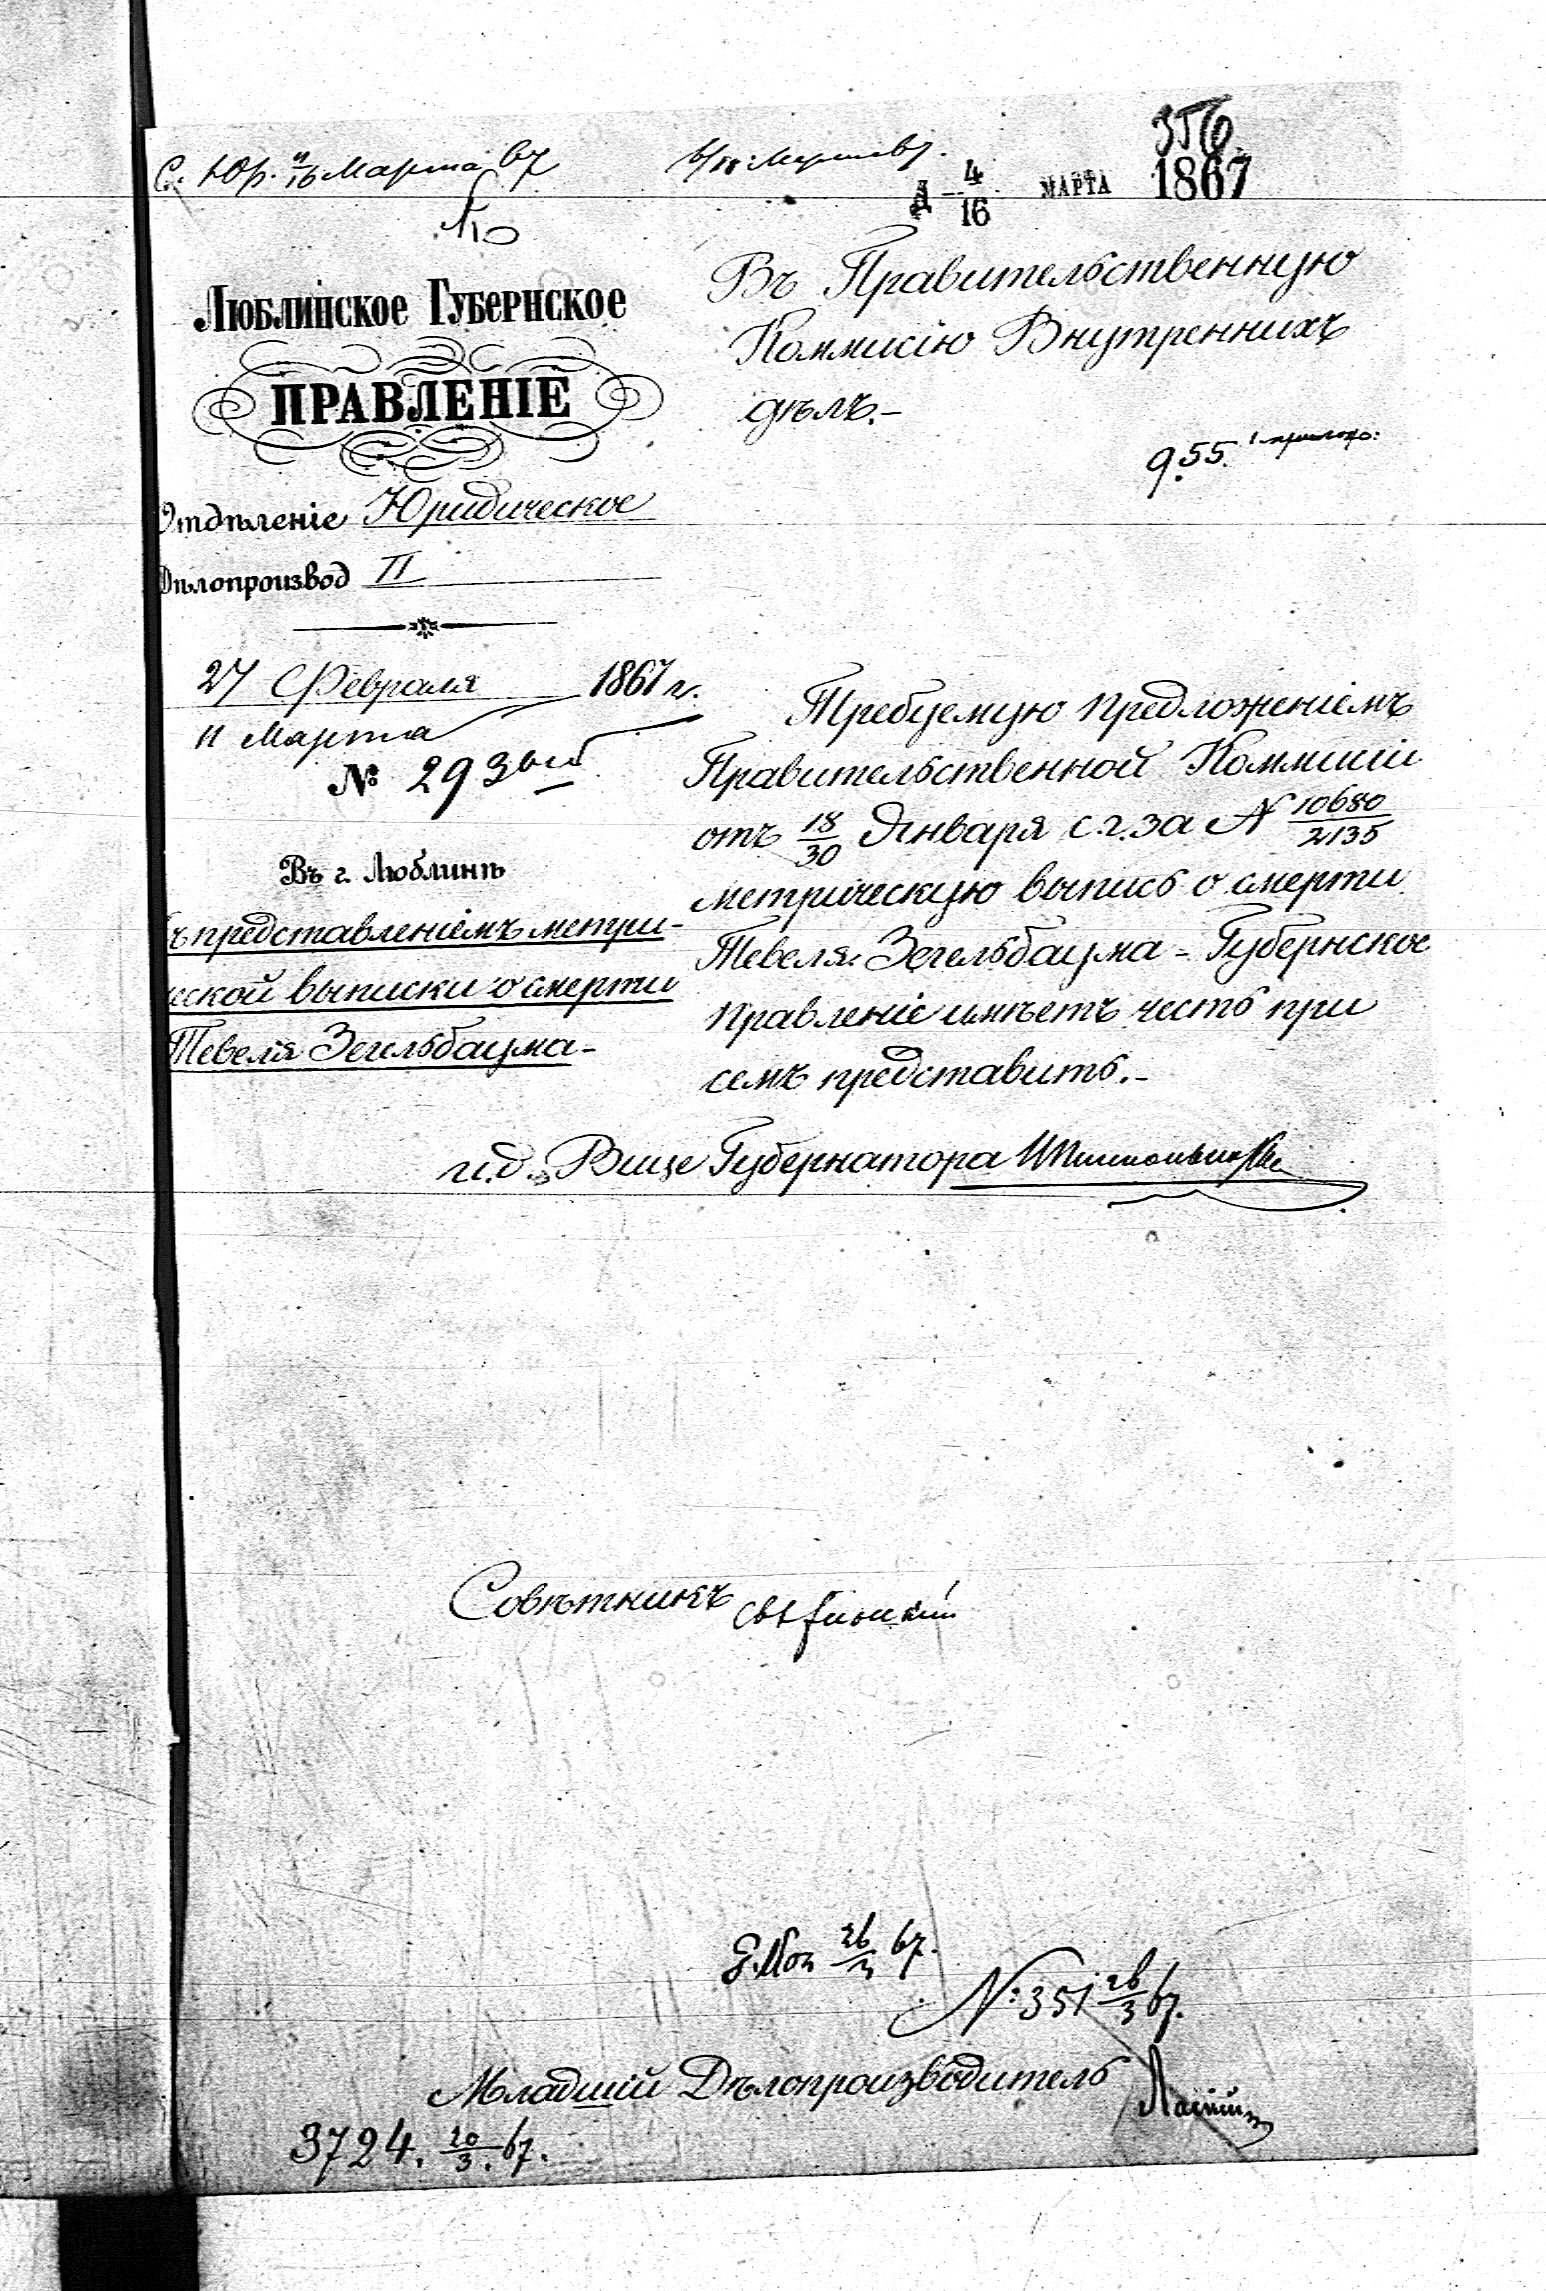 356
С. Юр. 4/16 Марта 67
Д 4/16 МАРТА 1867
Люблинское Губернское
ПРАВЛЕНІЕ
Отдѣленіе Юридическое
Дѣлопроизвод II
27 Февраля 1867 г.
11 Марта
№ 293
Въ г. Люблинѣ
ъ представленіемъ метри-
ской выписки о смерти
Тевеля Зегельбаума-
Въ Правительственную
Коммисію Внутреннихъ
дѣлъ.-
955. 1 прилож:
Требуемую предложеніемъ
Правительственной Коммисіи
отъ 18/30 Января с.г. за № 10680/2135
метрическую выпись о смерти
Тевеля Зегельбаума - Губернское
Правленіе имѣетъ честь при
семъ представить.-
и.д. Вице Губернатора
Совѣтникъ
26/3 67.
№: 351 26/3 67.
Младшій Дѣлопроизводитель
3724. 20/3. 67.